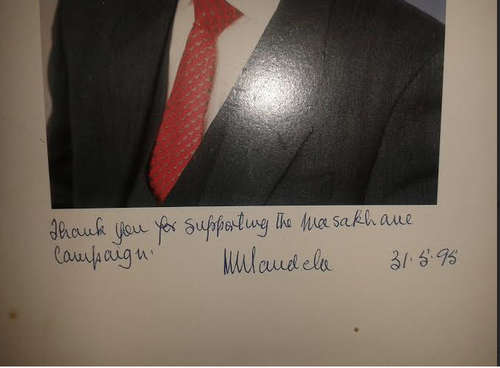 Thank you for supporting the Masakhane
Campaign.
NMandela 31.5.95